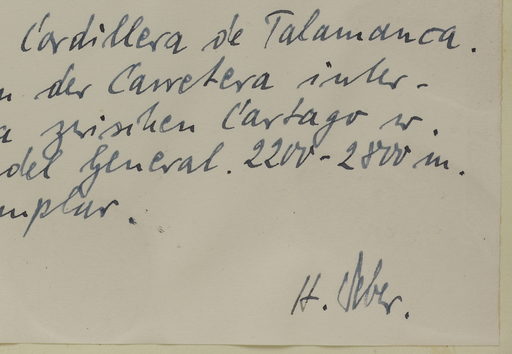 Cordillera de Talamanca.
n der Carretera inter-
a zwischen Cartago u.
del General. 2200-2800 m.
mplar.
H. Weber.